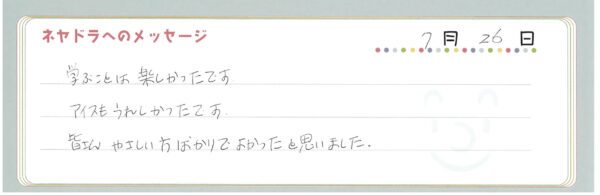 ネヤドラへのメッセージ
7月26日
学ぶことは楽しかったです
アイスもうれしかったです.
皆さんやさしい方ばかりでよかったと思いました.